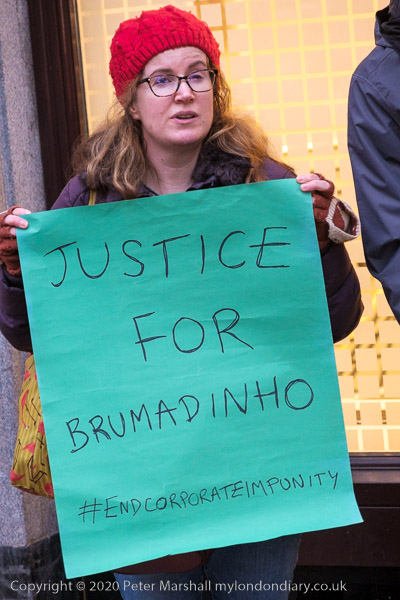 JUSTICE
FOR
BRUMADINHO
#ENDCORPORATEIMPUNITY
Copyright © 2020 Peter Marshall mylondondiary.co.uk